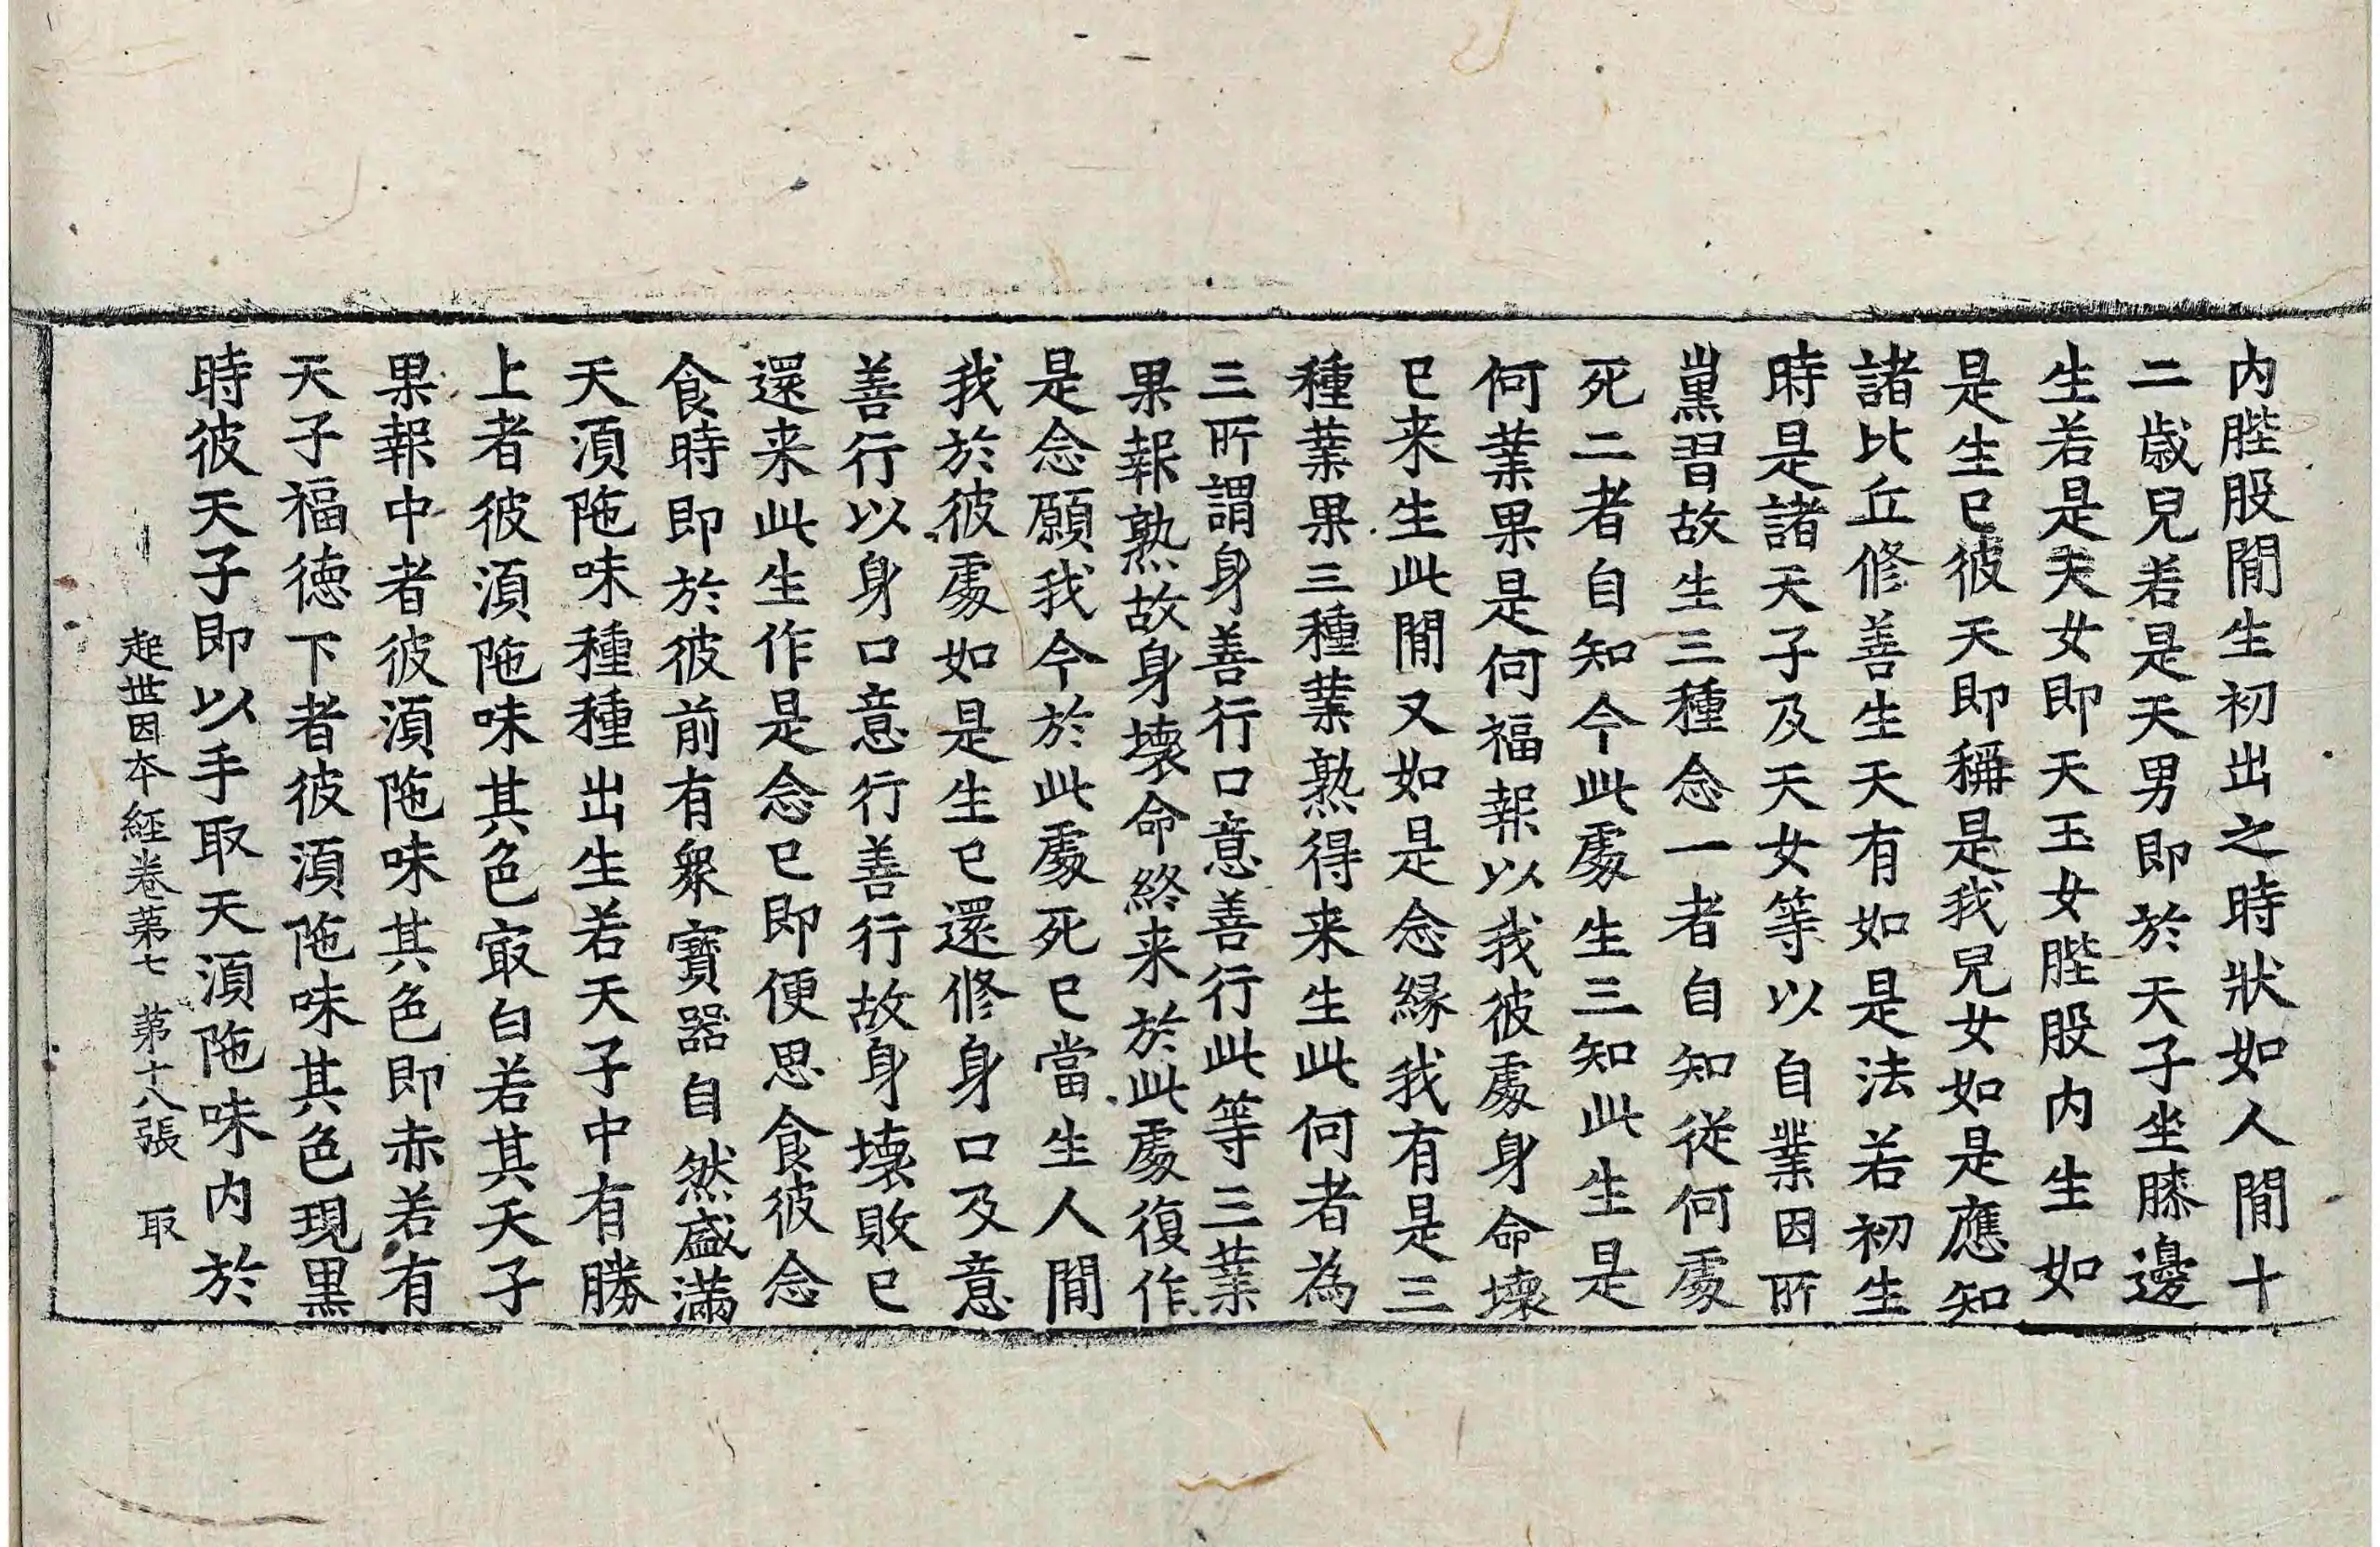 内䏶股閒生初出之時狀如人閒十
二歲兒若是天男即於天子坐膝邊
生若是天女即天玉女䏶股内生如
是生已彼天即稱是我兒女如是應知
諸比丘修善生天有如是法若初生
時是諸天子及天女等以自業因所
熏習故生三種念一者自知從何處
死二者自知今此處生三知此生是
何業果是何福報以我彼處身命壞
已来生此閒又如是念緣我有是三
種業果三種業熟得来生此何者為
三所謂身善行口意善行此等三業
果報熟故身壞命終来於此處復作
是念願我今於此處死已當生人閒
我於彼處如是生已還修身口及意
善行以身口意行善行故身壞敗已
還来此生作是念已即便思食彼念
食時即於彼前有衆寶器自然盛滿
天湏陁味種種出生若天子中有勝
上者彼湏陁味其色㝡白若其天子
果報中者彼湏陁味其色即赤若有
天子福德下者彼湏陁味其色現黒
時彼天子即以手取天湏陁味内於
起世因本經卷第七 第十八張 取